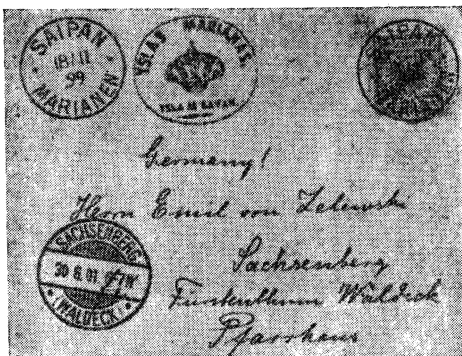 SAIPAN
18/11
99
MARIANEN
YSLAS MARIANAS
YSLA DE SAYPAN.
SAIPAN
MARIANEN
Germany!
Herrn Emil von Zelewski
Sachsenberg
Fürstenthum Waldeck
Pfarrhaus
SACHSENBERG
30 6.01
(WALDECK)